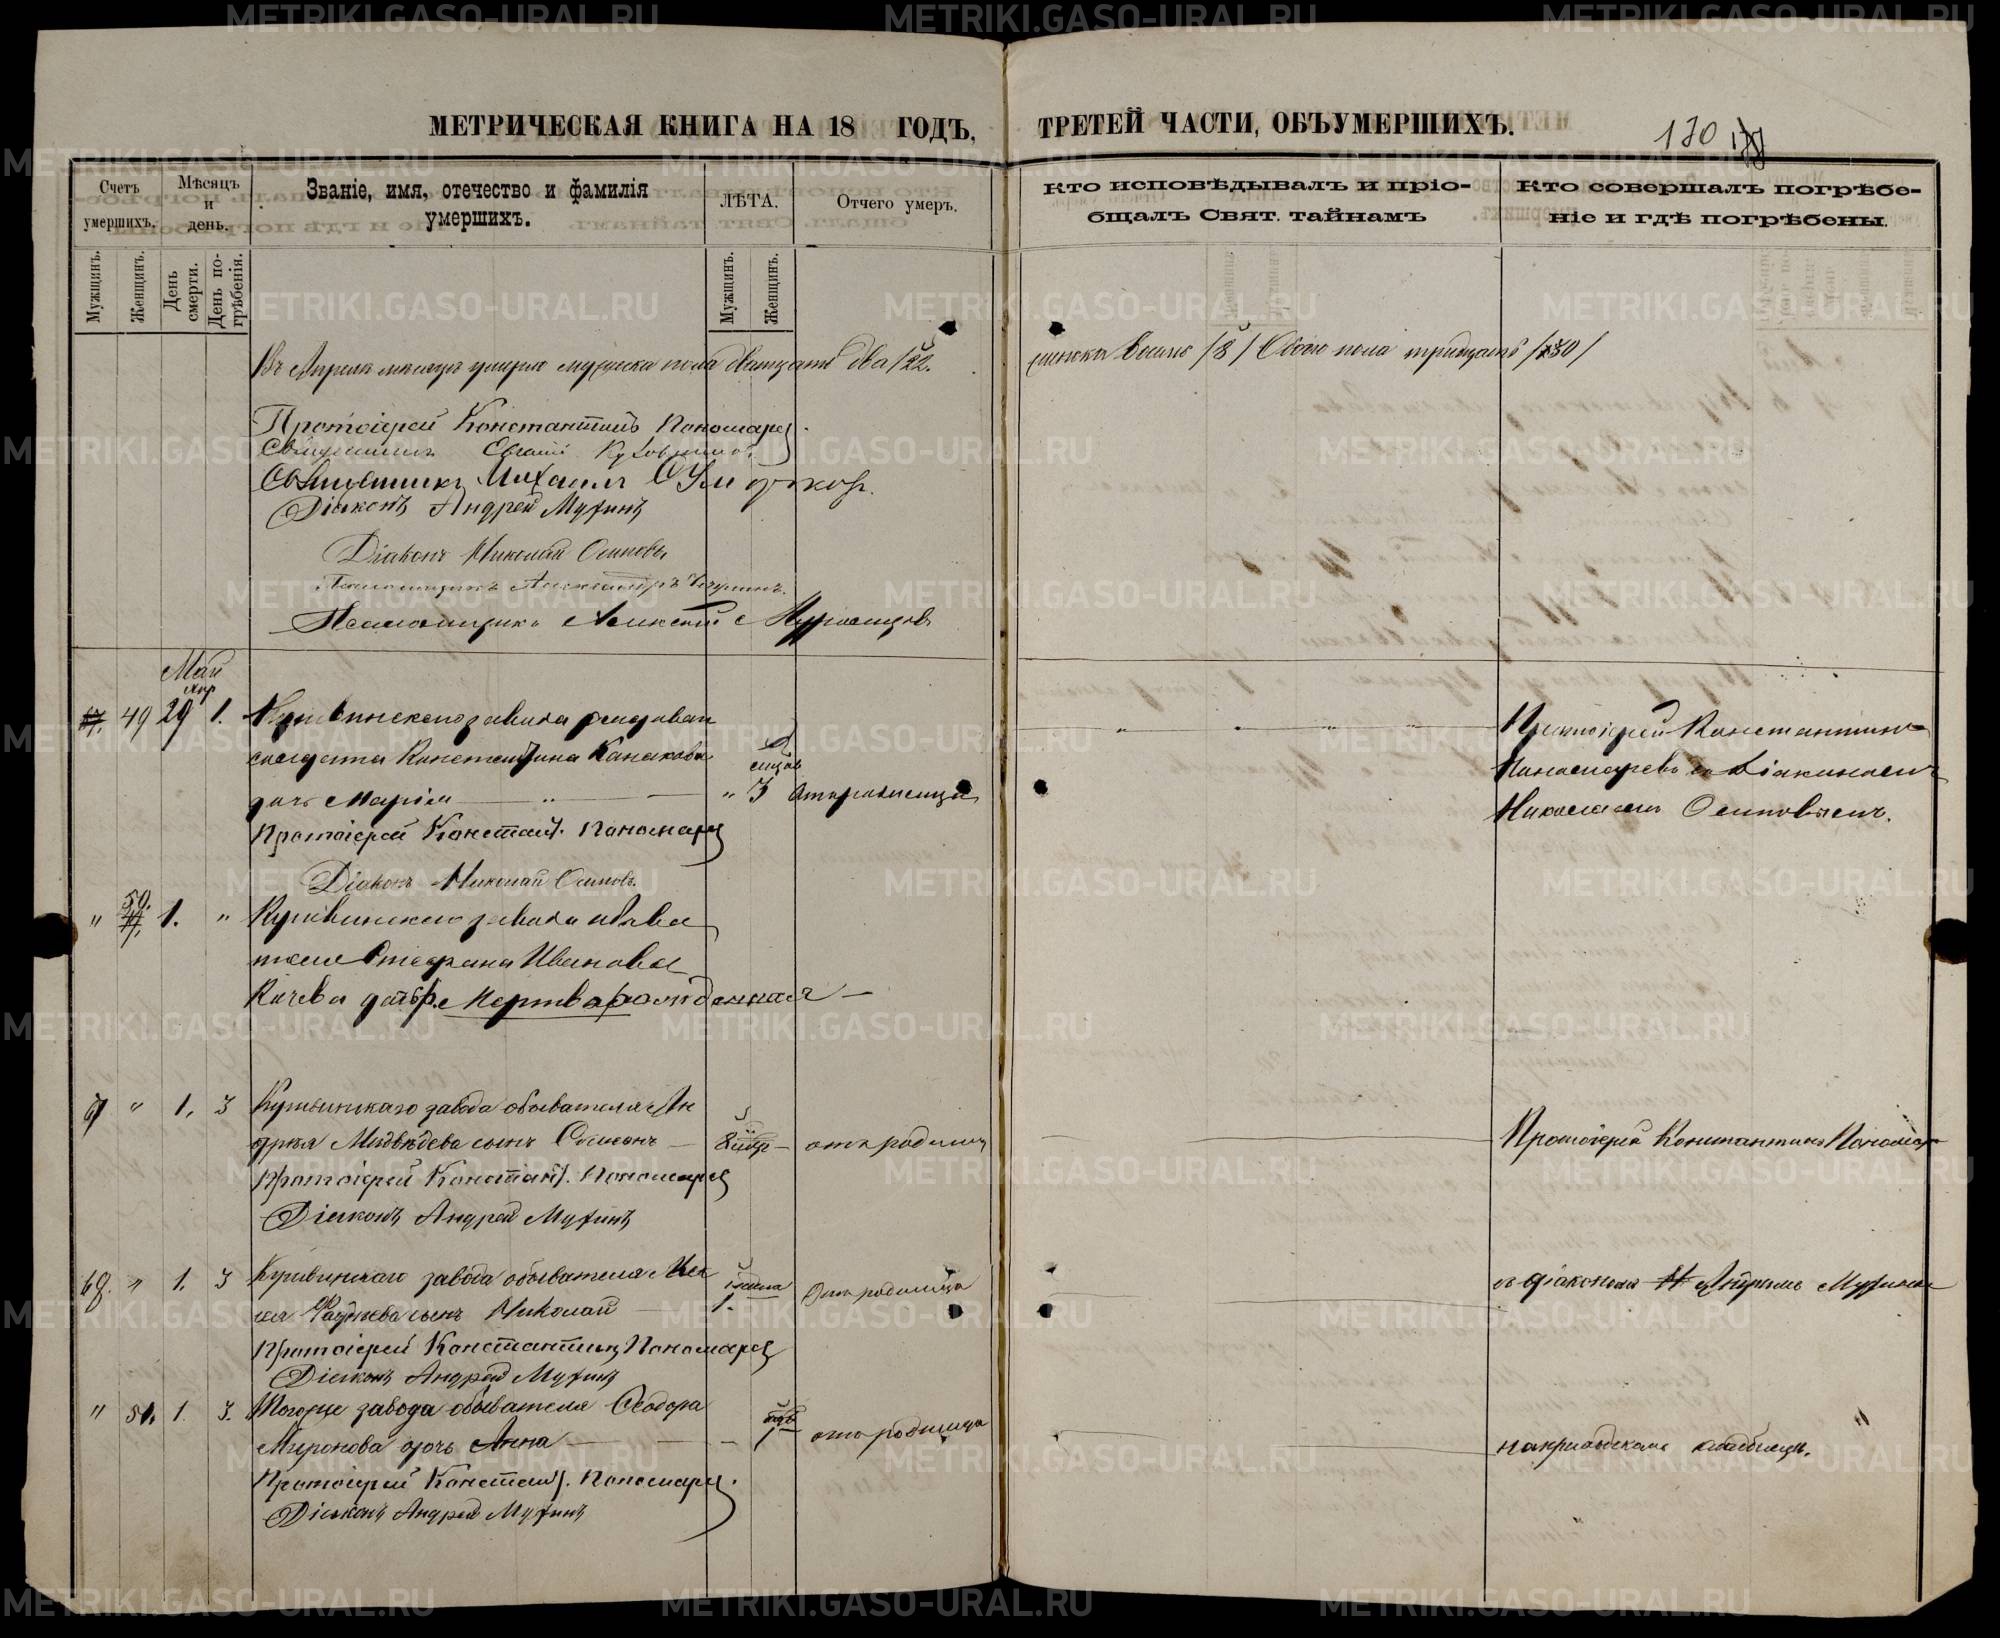 МЕТРИЧЕСКАЯ КНИГА НА 18 ГОДЪ,
ТРЕТЕЙ ЧАСТИ, ОБЪУМЕРШИХЪ.
170
Счетъ умершихъ.
Мѣсяцъ и день.
Званіе, имя, отечество и фамилія умершихъ.
ЛѢТА.
Отчего умеръ.
Кто исповѣдывалъ и пріобщалъ Свят. тайнамъ
Кто совершалъ погребеніе и гдѣ погребены.
Мужчинъ.
Женщинъ.
День смерти.
День погребенія.
Мужчинъ.
Женщинъ.
Въ Апрелѣ месяцѣ умерло мужеска пола двадцать два /22.
женска восемь /8/ Обоего пола тридцать /30/
Протоіерей Константинъ Пономарев
Священникъ Евгеній
Священникъ Михаилъ
Діаконъ Андрей Мухинъ
Діаконъ Николай Осиповъ
Псаломщикъ Александръ
Псаломщикъ Алексѣй
Май
Апр
49 29 1. Кушвинского завода
солдата Константина Канакова
дочь Марія
3 отъ родимца
Протоіерей Константинъ
Пономаревъ съ Діакономъ
Николаемъ Осиповымъ.
Протоіерей Констант. Пономарев
Діаконъ Николай Осиповъ
" 50. 1. " Кушвинского завода обыва
теля Стефана Иванова
мертворожденная
" 1. 3 Кушвинскаго завода обывателя Ан
дрея Медвѣдева сынъ Симеонъ
8 отъ родимц
Протоіерей Константинъ Пономар
Протоіерей Констант. Пономарев
Діаконъ Андрей Мухинъ
68. " 1. 3 Кушвинскаго завода обывателя
сынъ Николай
1. отъ родимца
съ діакономъ Андреемъ Мухинымъ
Протоіерей Константинъ Пономарев
Діаконъ Андрей Мухинъ
" 51. 1. 3. Тогоже завода обывателя Ѳеодора
Миронова дочь Анна
1 отъ родимца
на приходскомъ кладбищѣ.
Протоіерей Констант. Пономарев
Діаконъ Андрей Мухинъ
METRIKI.GASO-URAL.RU